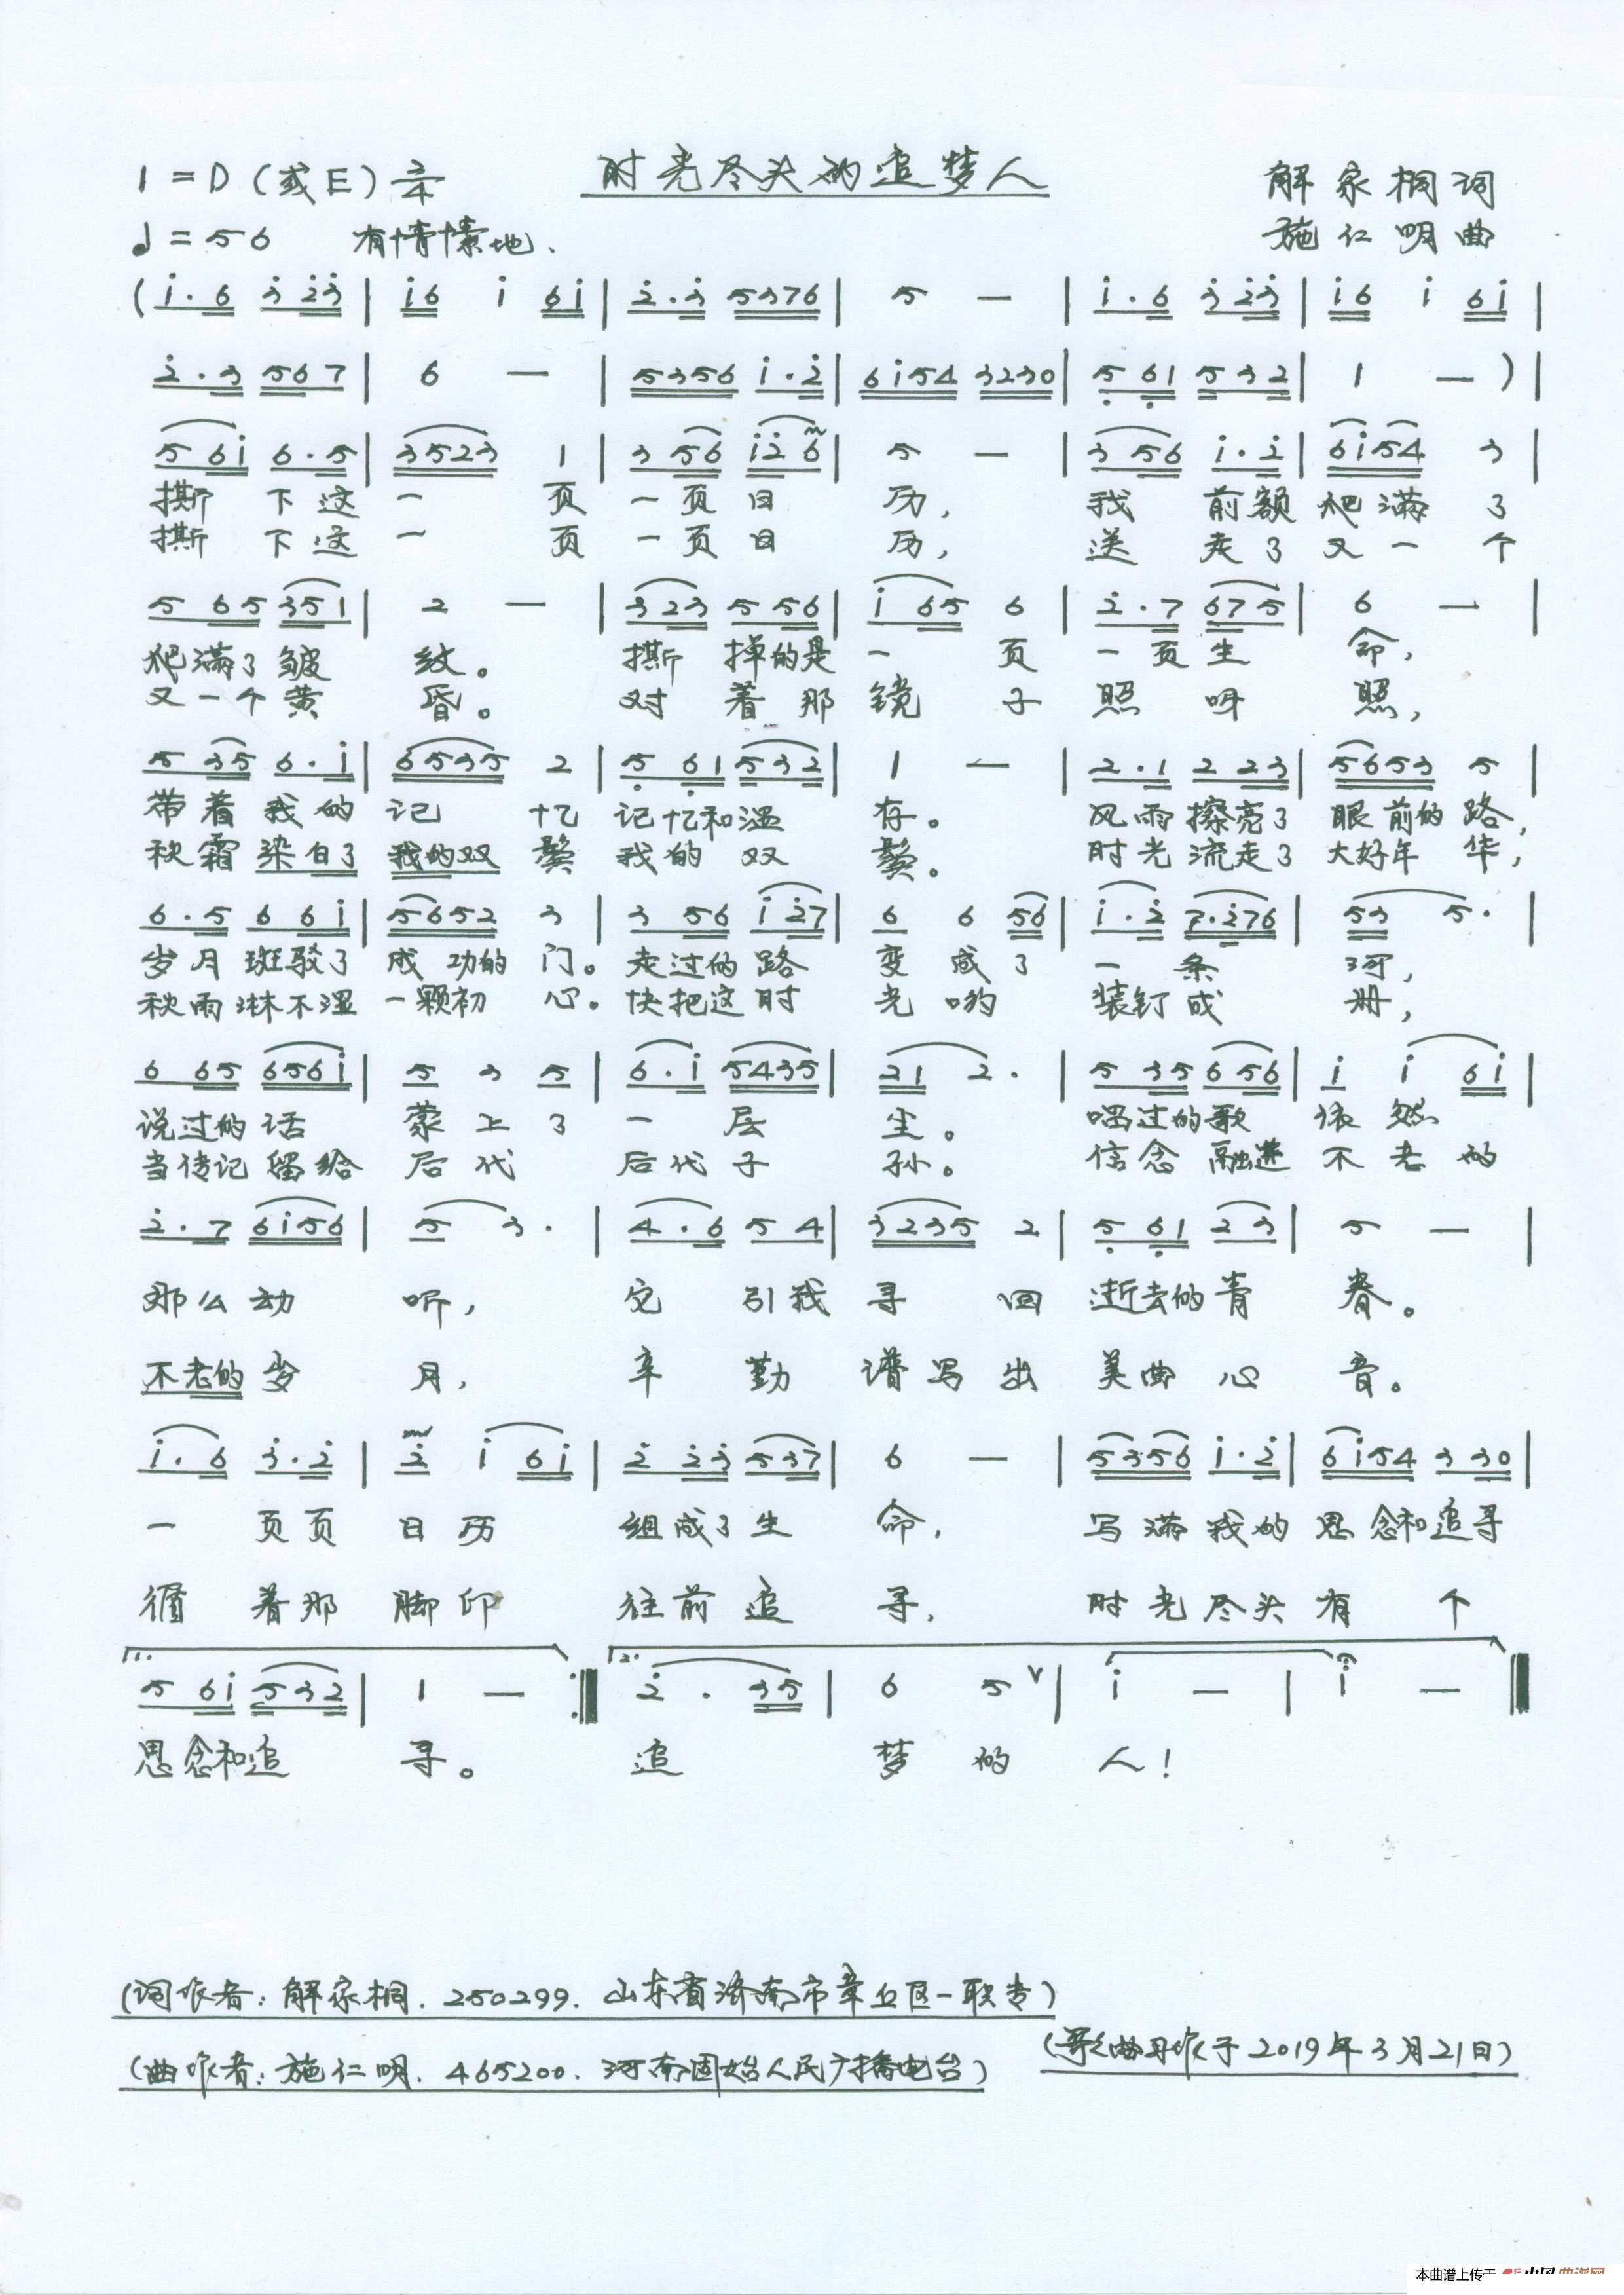 1=D(或E) 2/4 时光尽头的追梦人 解家桐词
♩=56 有情愫地. 施仁明曲
(i·6 3 23 | i6 i 6i | 2·3 5376 | 5 — | i·6 3 23 | i6 i 6i |
2·3 56 7 | 6 — | 5356 i·2 | 6i54 3230 | 5 61 5 32 | 1 — ) |
5 6i 6·5 | 3523 1 | 3 56 i2 6 | 5 — | 3 56 i·2 | 6i54 3 |
撕 下 这 一 页 一 页 日 历, 我 前额 爬 满 了
撕 下 这 一 页 一 页 日 历, 送 走 了 又 一 个
5 65 351 | 2 — | 3 23 5 56 | i 65 6 | 2·7 67 5 | 6 — |
爬满了 皱 纹。 撕 掉的是 一 页 一 页 生 命,
又 一 个 黄 昏。 对 着 那 镜 子 照 呀 照,
5 35 6·i | 6535 2 | 5 61 5 32 | 1 — | 2·1 2 23 | 5653 5 |
带 着 我 的 记 忆 记忆和温 存。 风雨 擦亮了 眼前的 路,
秋霜 染白了 我的双 鬓 我 的 双 鬓。 时光 流走了 大好年 华,
6·5 6 6i | 5652 3 | 3 56 i 27 | 6 6 56 | i·2 7·276 | 53 5· |
岁月 斑驳了 成功的 门。 走过的 路 变 成 了 一 条 河,
秋雨 淋不湿 一颗初 心。 快把这 时 光 哟 装钉 成 册,
6 65 656i | 5 3 5 | 6·i 5435 | 21 2· | 5 35 6 56 | i i 6i |
说过的 话 蒙 上 了 一 层 尘。 唱过的歌 依 然
当传记 留给 后 代 后代 子 孙。 信念 融进 不 老 的
2·7 6i56 | 5 3· | 4·6 5 4 | 3235 2 | 5 61 2 3 | 5 — |
那么 动 听, 它 引我 寻 回 逝去的 青 春。
不老的 岁 月, 辛 勤 谱 写 出 美曲 心 音。
i·6 3·2 | 2 i 6i | 2 23 5 37 | 6 — | 5356 i·2 | 6i54 3 30 |
一 页 页 日 历 组成了 生 命, 写 满 我 的 思 念和追寻
循 着那 脚 印 往前 追 寻, 时光 尽头 有 个
1. 2.
5 6i 5 32 | 1 — :| 2 · 35 | 6 5 ∨ | i — | i — ‖
思 念和追 寻。 追 梦 的 人!
(词作者:解家桐. 250299. 山东省济南市章丘区一职专)
(歌曲写作于2019年3月21日)
(曲作者:施仁明. 465200. 河南固始人民广播电台)
本曲谱上传于 中国曲谱网